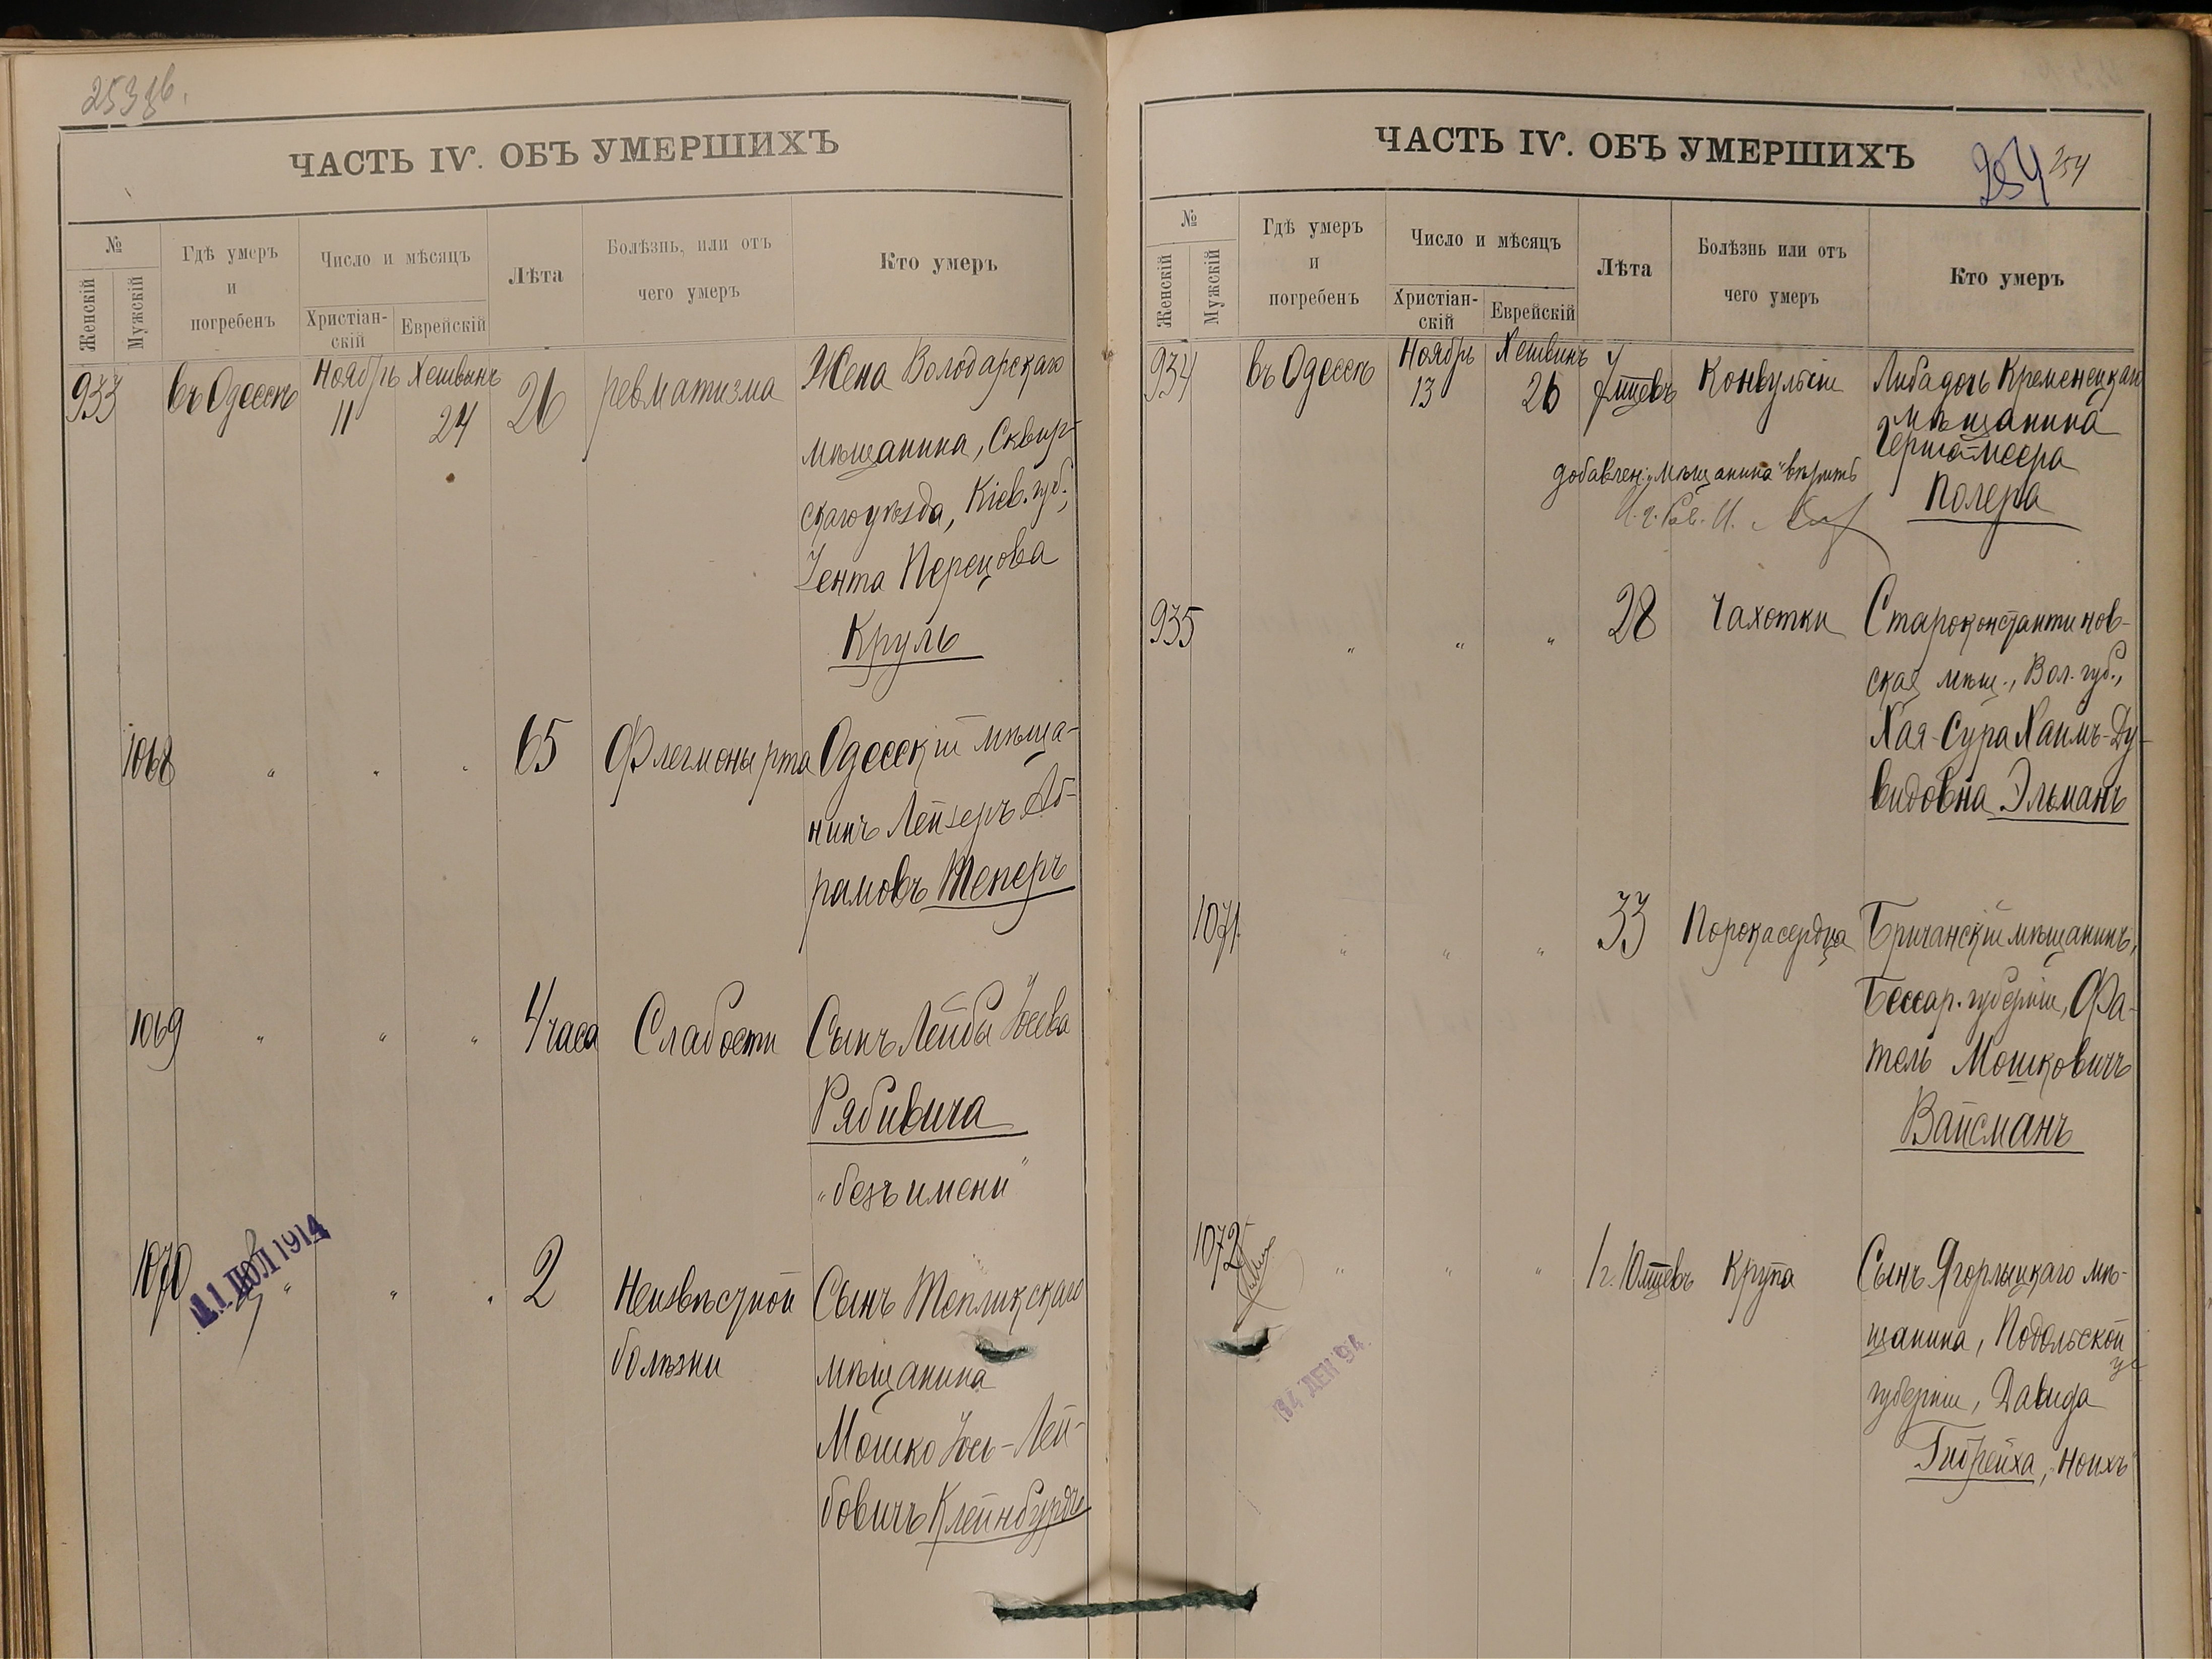 253 об.
ЧАСТЬ IV. ОБЪ УМЕРШИХЪ
№
Женскій
Мужскій
Гдѣ умеръ
и
погребенъ
Число и мѣсяцъ
Христіан-
скій
Еврейскій
Лѣта
Болѣзнь, или отъ
чего умеръ
Кто умеръ
933 въ Одессѣ Ноябрь 11 Хешвинъ 24 26 ревматизма Жена Володарскаго
мѣщанина, Сквир-
скаго уѣзда, Кіев. губ.,
Ента Перецова
Круль
1068 " " " 65 Флегмоны рта Одесскій мѣща-
нинъ Лейзеръ Аб-
рамовъ Теперъ
1069 " " " 4 часа Слабости Сынъ Лейбы Іосева
Рябивича
"безъ имени"
1070 " " " 2 Неизвѣстной Сынъ Тепликскаго
болѣзни мѣщанина
Мошко Іось-Лей-
бовичъ Клейнбурдъ
11 1914
ЧАСТЬ IV. ОБЪ УМЕРШИХЪ
254 254
№
Женскій
Мужскій
Гдѣ умеръ
и
погребенъ
Число и мѣсяцъ
Христіан-
скій
Еврейскій
Лѣта
Болѣзнь или отъ
чего умеръ
Кто умеръ
934 въ Одессѣ Ноябрь 13 Хешвинъ 26 Конвульсіи Либа дочь Кременецкаго
мѣщанина
Герша-Меера
Полера
добавлен: „мѣщанина" вѣрить
935 " " " 28 Чахотки Староконстантинов-
ская мѣщ., Вол. губ.,
Хая-Сура Хаимъ-Ду-
видовна Эльманъ
1071 " " " 33 Порока сердца Бричанскій мѣщанинъ,
Бессар. губерніи, Фа-
тель Мошковичъ
Вайсманъ
1072 " " " 1 г. 10 мцевъ Крупа Сынъ Ягорлыцкаго мѣ-
щанина, Подольской
губерніи, Давида
Гибрейха, „Ноихъ"
ДЕК 94